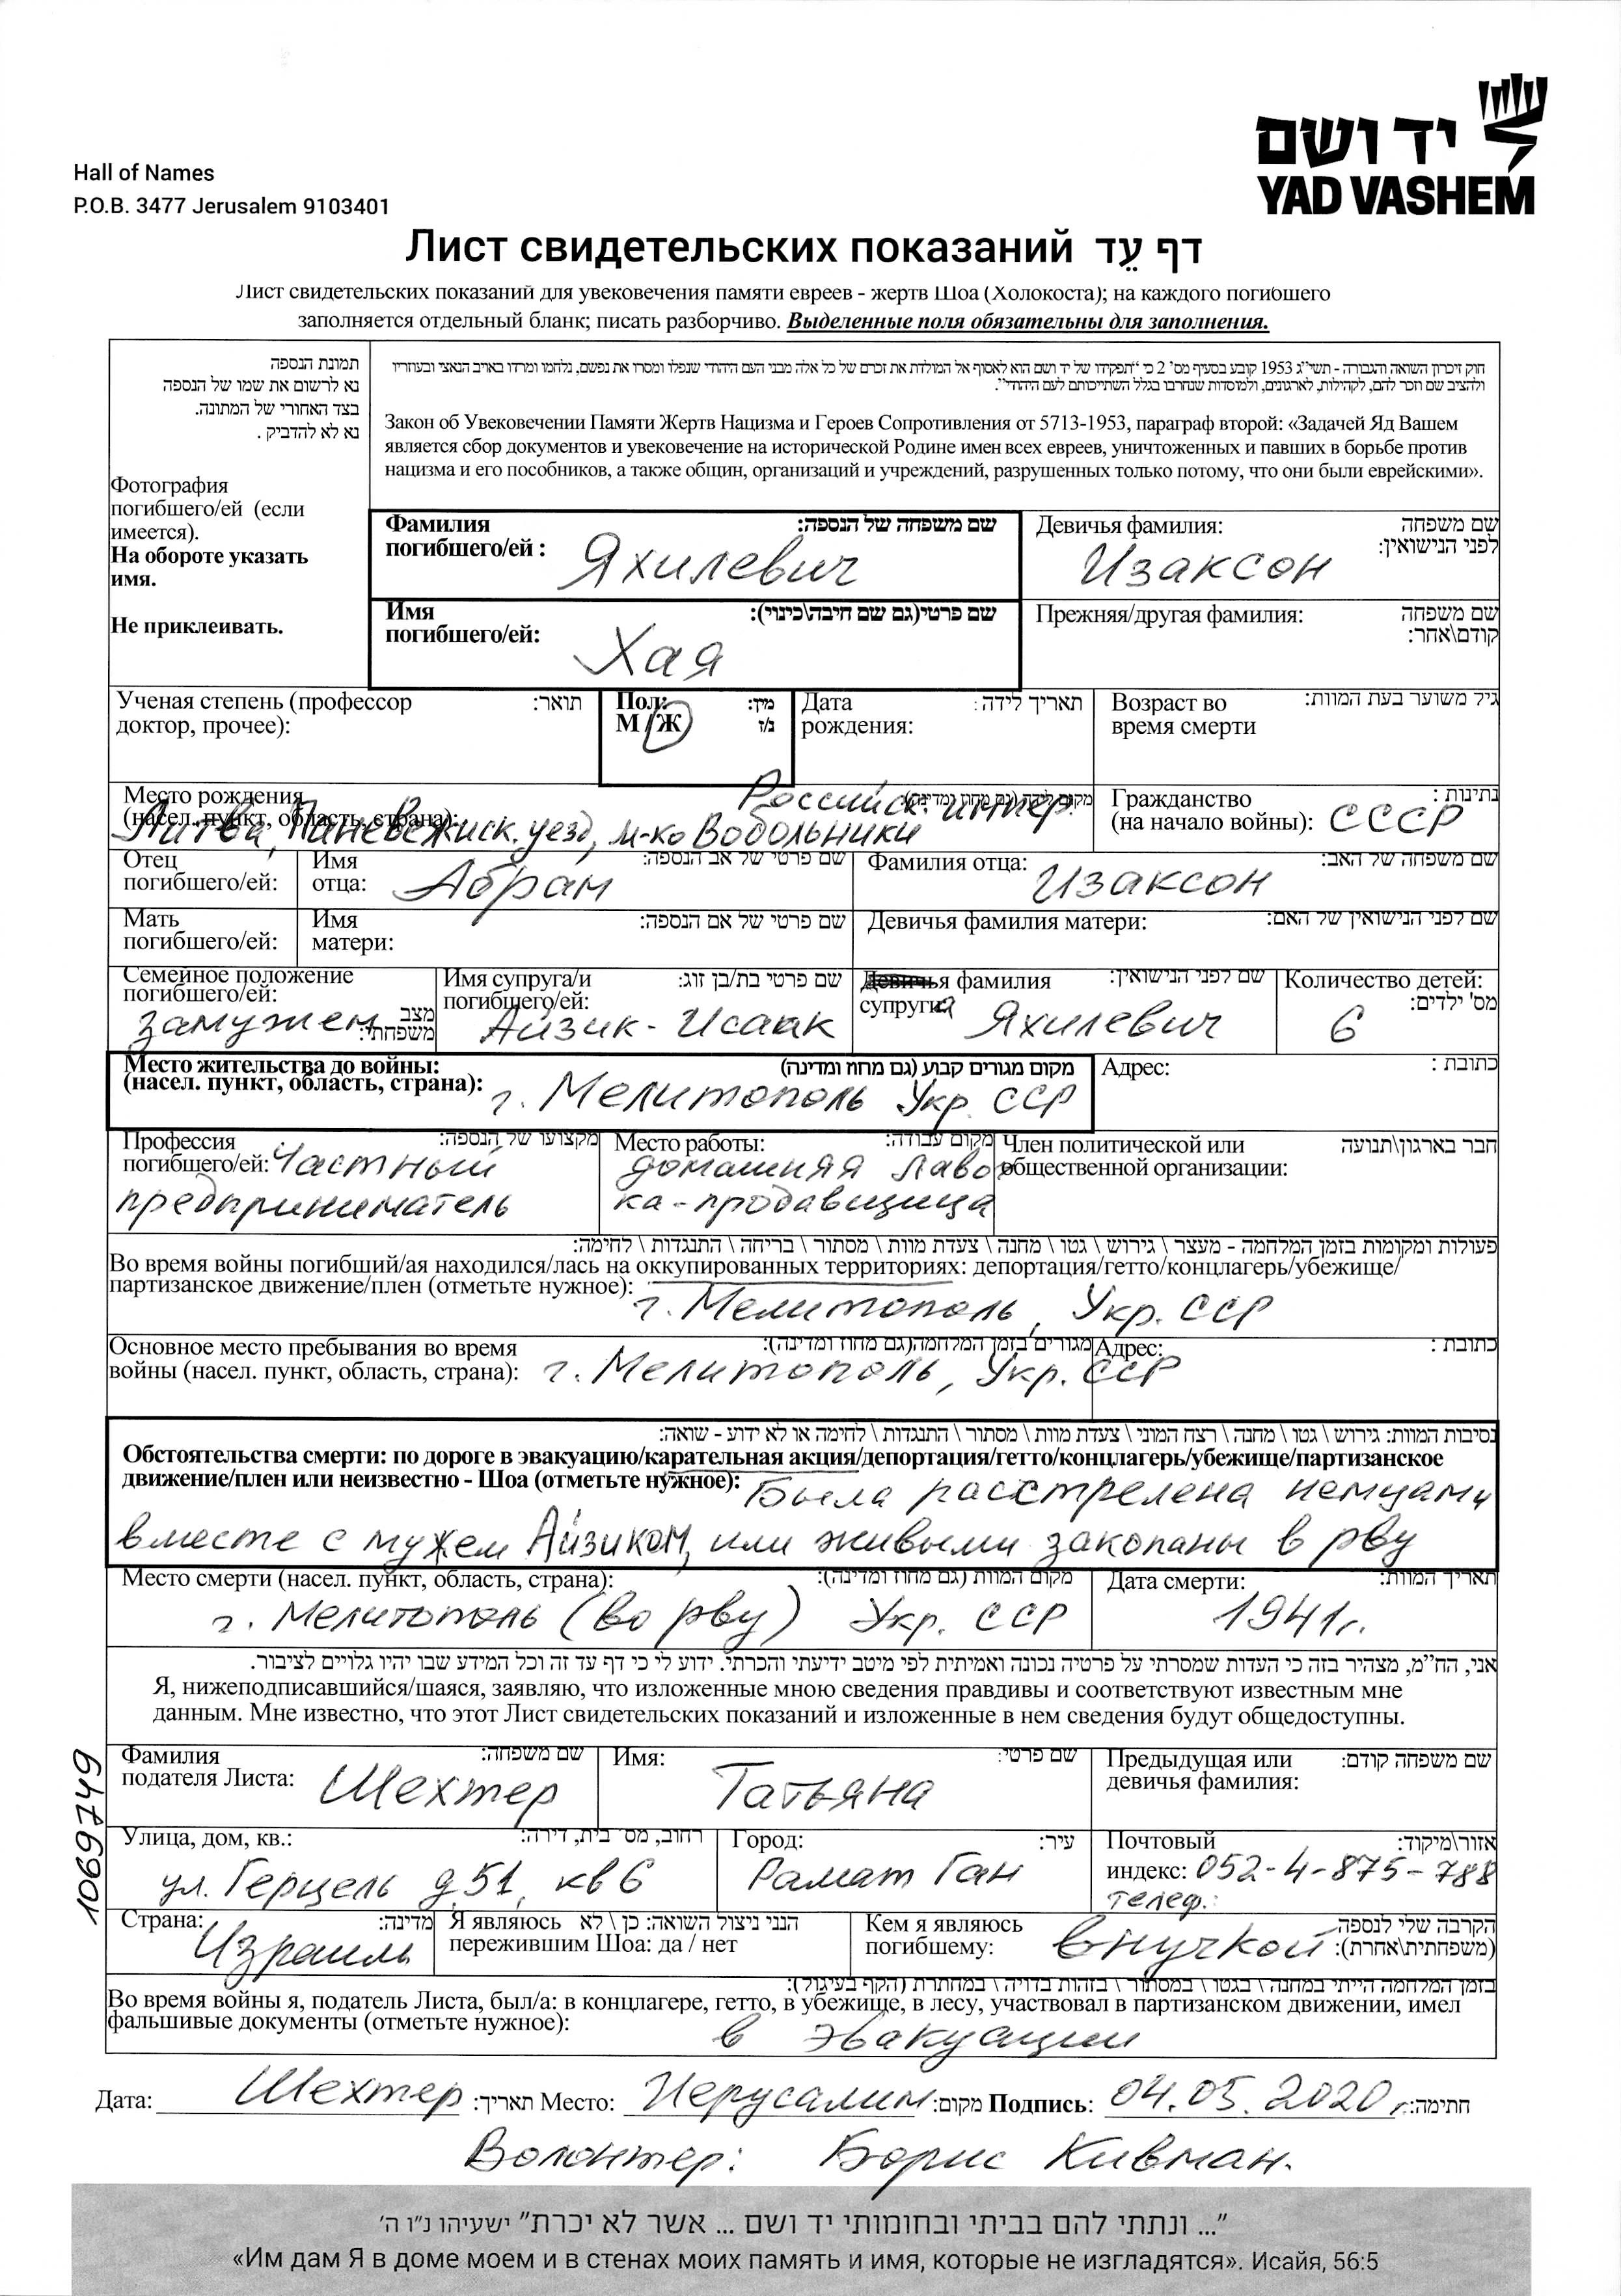 יד ושם
YAD VASHEM
Hall of Names
P.O.B. 3477 Jerusalem 9103401
Лист свидетельских показаний דף עֵד
Лист свидетельских показаний для увековечения памяти евреев - жертв Шоа (Холокоста); на каждого погибшего
заполняется отдельный бланк; писать разборчиво. Выделенные поля обязательны для заполнения.
תמונת הנספה
נא לרשום את שמו של הנספה
בצד האחורי של המתונה.
נא לא להדביק .
Фотография
погибшего/ей (если
имеется).
На обороте указать
имя.
Не приклеивать.
חוק זיכרון השואה והגבורה - תשי"ג 1953 קובע בסעיף מס' 2 כי "תפקידו של יד ושם הוא לאסוף אל המולדת את זכרם של כל אלה מבני העם היהודי שנפלו ומסרו את נפשם, נלחמו ומרדו באויב הנאצי ובעוזריו
ולהציב שם וזכר להם, לקהילות, לארגונים, ולמוסדות שנחרבו בגלל השתייכותם לעם היהודי".
Закон об Увековечении Памяти Жертв Нацизма и Героев Сопротивления от 5713-1953, параграф второй: «Задачей Яд Вашем
является сбор документов и увековечение на исторической Родине имен всех евреев, уничтоженных и павших в борьбе против
нацизма и его пособников, а также общин, организаций и учреждений, разрушенных только потому, что они были еврейскими».
Фамилия שם משפחה של הנספה:
погибшего/ей : Яхилевич
Девичья фамилия: שם משפחה
לפני הנישואין:
Изаксон
Имя שם פרטי(גם שם חיבה\כינוי):
погибшего/ей:
Хая
Прежняя/другая фамилия: שם משפחה
קודם\אחר:
Ученая степень (профессор תואר:
доктор, прочее):
Пол: מין:
М / Ж ז/נ
Дата תאריך לידה :
рождения:
Возраст во גיל משוער בעת המוות:
время смерти
Место рождения מקום לידה (גם מחוז ומדינה):
(насел. пункт, область, страна):
Российск. импер.
Литва, Паневежиск. уезд, м-ко Вобольники
Гражданство נתינות :
(на начало войны): СССР
Отец
погибшего/ей:
Имя שם פרטי של אב הנספה:
отца: Абрам
Фамилия отца: שם משפחה של האב:
Изаксон
Мать
погибшего/ей:
Имя שם פרטי של אם הנספה:
матери:
Девичья фамилия матери: שם לפני הנישואין של האם:
Семейное положение
погибшего/ей:
замужем מצב
משפחתי:
Имя супруга/и שם פרטי בת/בן זוג:
погибшего/ей:
Айзик-Исаак
Девичья фамилия שם לפני הנישואין:
супруга Яхилевич
Количество детей:
מס' ילדים:
6
Место жительства до войны: מקום מגורים קבוע (גם מחוז ומדינה)
(насел. пункт, область, страна): г. Мелитополь Укр. ССР
Адрес: כתובת :
Профессия מקצועו של הנספה:
погибшего/ей: Частный
предприниматель
Место работы: מקום עבודה:
домашняя лавоч
ка-продавщица
Член политической или חבר בארגון\תנועה
общественной организации:
פעולות ומקומות בזמן המלחמה - מעצר \ גירוש \ גטו \ מחנה \ צעדת מוות \ מסתור \ בריחה \ התנגדות \ לחימה:
Во время войны погибший/ая находился/лась на оккупированных территориях: депортация/гетто/концлагерь/убежище/
партизанское движение/плен (отметьте нужное): г. Мелитополь, Укр. ССР
Основное место пребывания во время מגורים בזמן המלחמה(גם מחוז ומדינה):
войны (насел. пункт, область, страна): г. Мелитополь, Укр. ССР
Адрес: כתובת :
נסיבות המוות: גירוש \ גטו \ מחנה \ רצח המוני \ צעדת מוות \ מסתור \ התנגדות \ לחימה או לא ידוע - שואה:
Обстоятельства смерти: по дороге в эвакуацию/карательная акция/депортация/гетто/концлагерь/убежище/партизанское
движение/плен или неизвестно - Шоа (отметьте нужное): Была расстрелена немцами
вместе с мужем Айзиком, или живыми закопаны в рву
Место смерти (насел. пункт, область, страна): מקום המוות (גם מחוז ומדינה):
г. Мелитополь (во рву) Укр. ССР
Дата смерти: תאריך המוות:
1941г.
אני, הח"מ, מצהיר בזה כי העדות שמסרתי על פרטיה נכונה ואמיתית לפי מיטב ידיעתי והכרתי. ידוע לי כי דף עד זה וכל המידע שבו יהיו גלויים לציבור.
Я, нижеподписавшийся/шаяся, заявляю, что изложенные мною сведения правдивы и соответствуют известным мне
данным. Мне известно, что этот Лист свидетельских показаний и изложенные в нем сведения будут общедоступны.
Фамилия שם משפחה:
подателя Листа: Шехтер
Имя: שם פרטי:
Татьяна
Предыдущая или שם משפחה קודם:
девичья фамилия:
1069749
Улица, дом, кв.: רחוב, מס' בית, דירה:
ул. Герцель д.51, кв 6
Город: עיר:
Рамат Ган
Почтовый אזור\מיקוד:
индекс: 052-4-875-788
телеф.:
Страна: מדינה:
Израиль
Я являюсь הנני ניצול השואה: כן \ לא
пережившим Шоа: да / нет
Кем я являюсь הקרבה שלי לנספה
погибшему: внучкой (משפחתית\אחרת):
בזמן המלחמה הייתי במחנה \ בגטו \ במסתור \ בזהות בדויה \ במחתרת (הקף בעיגול):
Во время войны я, податель Листа, был/а: в концлагере, гетто, в убежище, в лесу, участвовал в партизанском движении, имел
фальшивые документы (отметьте нужное): в эвакуации
Дата: Шехтер תאריך: Место: Иерусалим מקום: Подпись: 04.05.2020г. חתימה:
Волонтер: Борис Кивман.
"... ונתתי להם בביתי ובחומותי יד ושם ... אשר לא יכרת" ישעיהו נ"ו ה'
«Им дам Я в доме моем и в стенах моих память и имя, которые не изгладятся». Исайя, 56:5